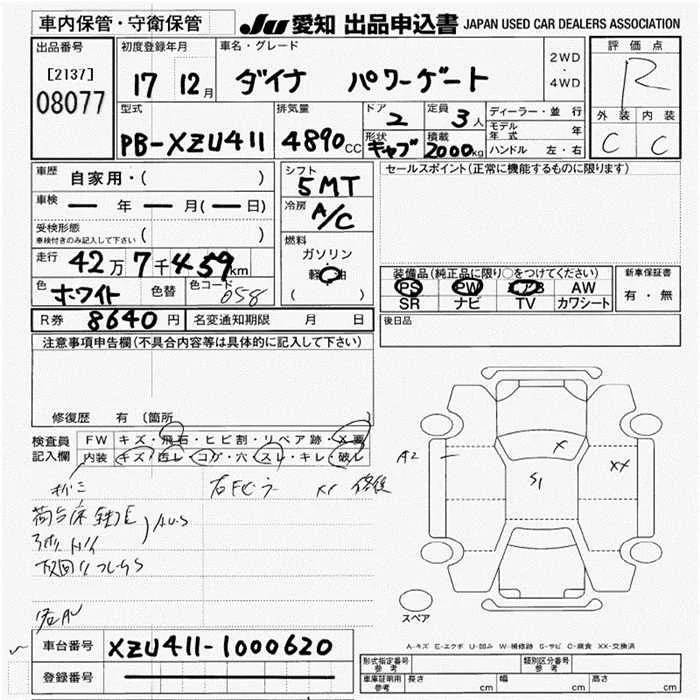 車内保管・守衛保管 JU 愛知 出品申込書 JAPAN USED CAR DEALERS ASSOCIATION
出品番号
[2137]
08077
初度登録年月
17 12月
車名・グレード
ダイナ パワーゲート
2WD
・
4WD
評価点
R
外装 内装
C C
型式
PB-XZU411
排気量
4890CC
ドア
2
定員
3人
形状
キャブ
積載
2000kg
ディーラー・並行
モデル年式 年
ハンドル 左・右
車歴
自家用・( )
車検
ー 年 ー 月(ー日)
受検形態
車検付きのみ記入して下さい ( )
走行
42万7千459km
色
ホワイト
色替
色コード
058
シフト
5MT
冷房
A/C
燃料
ガソリン
軽油
( )
セールスポイント(正常に機能するものに限ります)
装備品(純正品に限り○をつけてください)
PS PW AW
SR ナビ TV カワシート
新車保証書
有・無
R券 8640円 名変通知期限 月 日
後日品
注意事項申告欄(不具合内容等は具体的に記入して下さい)
修復歴 有(箇所 )
検査員
記入欄
FW キズ・飛石・ヒビ割・リペア跡・X要
内装 キズ・汚レ・コゲ・穴・スレ・キレ・破レ
荷台床
A2
S1
X
XX
スペア
A-キズ E-エクボ U-凹み W-補修跡 S-サビ C-腐食 XX-交換済
車台番号 XZU411-1000620
登録番号
形式指定番号
参考
類別区分番号
参考
車庫証明用
参考
長さ cm 幅 cm 高さ cm